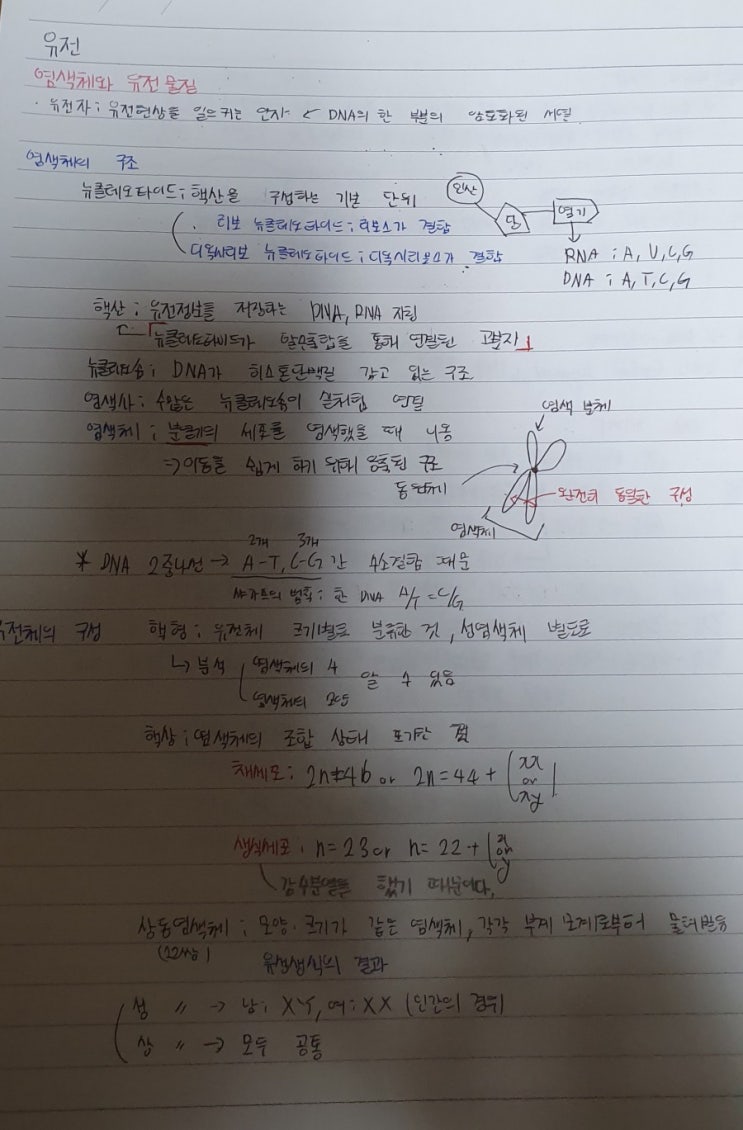 유전
염색체와 유전물질
· 유전자 ; 유전현상을 일으키는 인자 < DNA의 한 부분의 암호화된 서열
염색체의 구조
뉴클레오타이드 ; 핵산을 구성하는 기본 단위
인산 당 염기
· 리보 뉴클레오타이드 ; 리보스가 결합
디옥시리보 뉴클레오타이드 ; 디옥시리보스가 결합
RNA ; A, U, C, G
DNA ; A, T, C, G
핵산 ; 유전정보를 저장하는 DNA, RNA 지칭
뉴클레오타이드가 통해 연결된 고분자
뉴클레오솜 ; DNA가 히스톤단백질 감고 있는 구조
염색사 ; 수많은 뉴클레오솜이 실처럼 연결
염색체 ; 분열기의 세포를 염색했을 때 나옴
⇒ 이동을 쉽게 하기 위해 응축된 구조
염색 분체
동원체
완전히 동일한 구성
염색체
2개 3개
* DNA 2중나선 → A-T, C-G 간 수소결합 때문
샤가프의 법칙 ; 한 DNA A/T = C/G
유전체의 구성 핵형 ; 유전체 크기별로 분류한 것, 성염색체 별도로
↳ 분석 염색체의 수 알 수 있음
염색체의
핵상 ; 염색체의 조합 상태 표기한 것
체세포 ; 2n=46 or 2n=44+ XX or XY
생식세포 ; n=23 or n=22+ X or Y
감수분열을 했기 때문이다.
상동염색체 ; 모양·크기가 같은 염색체, 각각 부계 모계로부터 물려받음
(22쌍) 유성생식의 결과
성 〃 → 남 ; XY, 여 ; XX (인간의 경우)
상 〃 → 모두 공통